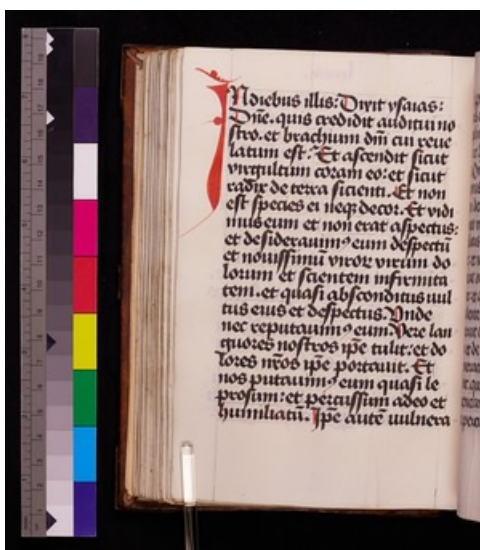 INdiebus illis: Dixit ysaias:
Dñe. quis credidit auditui no
stro. et brachium dñi cui reue
latum est. Et ascendit sicut
virgultum coram eo: et sicut
radix de terra sicienti. Et non
est species ei neqꝫ decor. Et vidi
mus eum et non erat aspectus:
et desiderauimꝰ eum despectū
et nouissimū viroꝝ virum do
lorum et scientem infirmita
tem. et quasi absconditus uul
tus eius et despectus. Vnde
nec reputauimꝰ eum. Vere lan
guores nostros ip̄e tulit: et do
lores nr̄os ip̄e portauit. Et
nos putauimꝰ eum quasi le
prosum: et percussum adeo et
humiliatū. Ip̄e autē uulnera